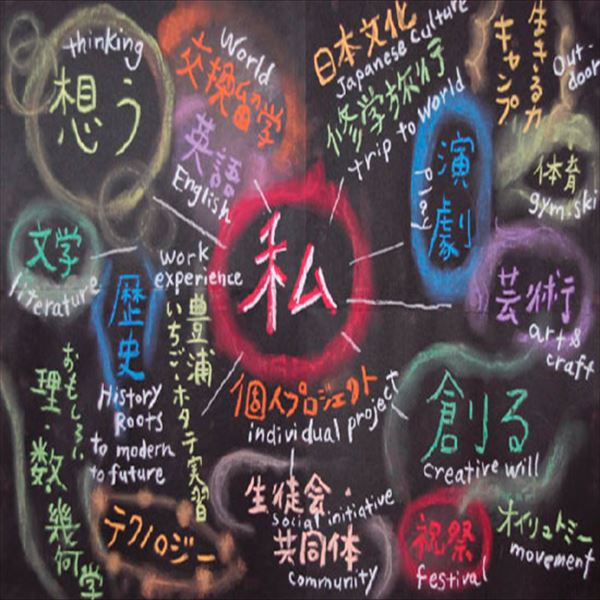 thinking
想う
World
交換留学
英語
English
日本文化
Japanese Culture
修学旅行
trip to world
生きる力
キャンプ
Out-
door
演劇
play
体育
gym.ski
文学
literature
歴史
History
Roots
to modern
to future
work
experience
豊浦
いちご・ホタテ実習
私
芸術
art &
craft
個人プロジェクト
individual project
創る
creative will
おもしろい
理・数・幾何学
テクノロジー
生徒会・
social initiative
共同体
community
祝祭
festival
オイリュトミー
movement